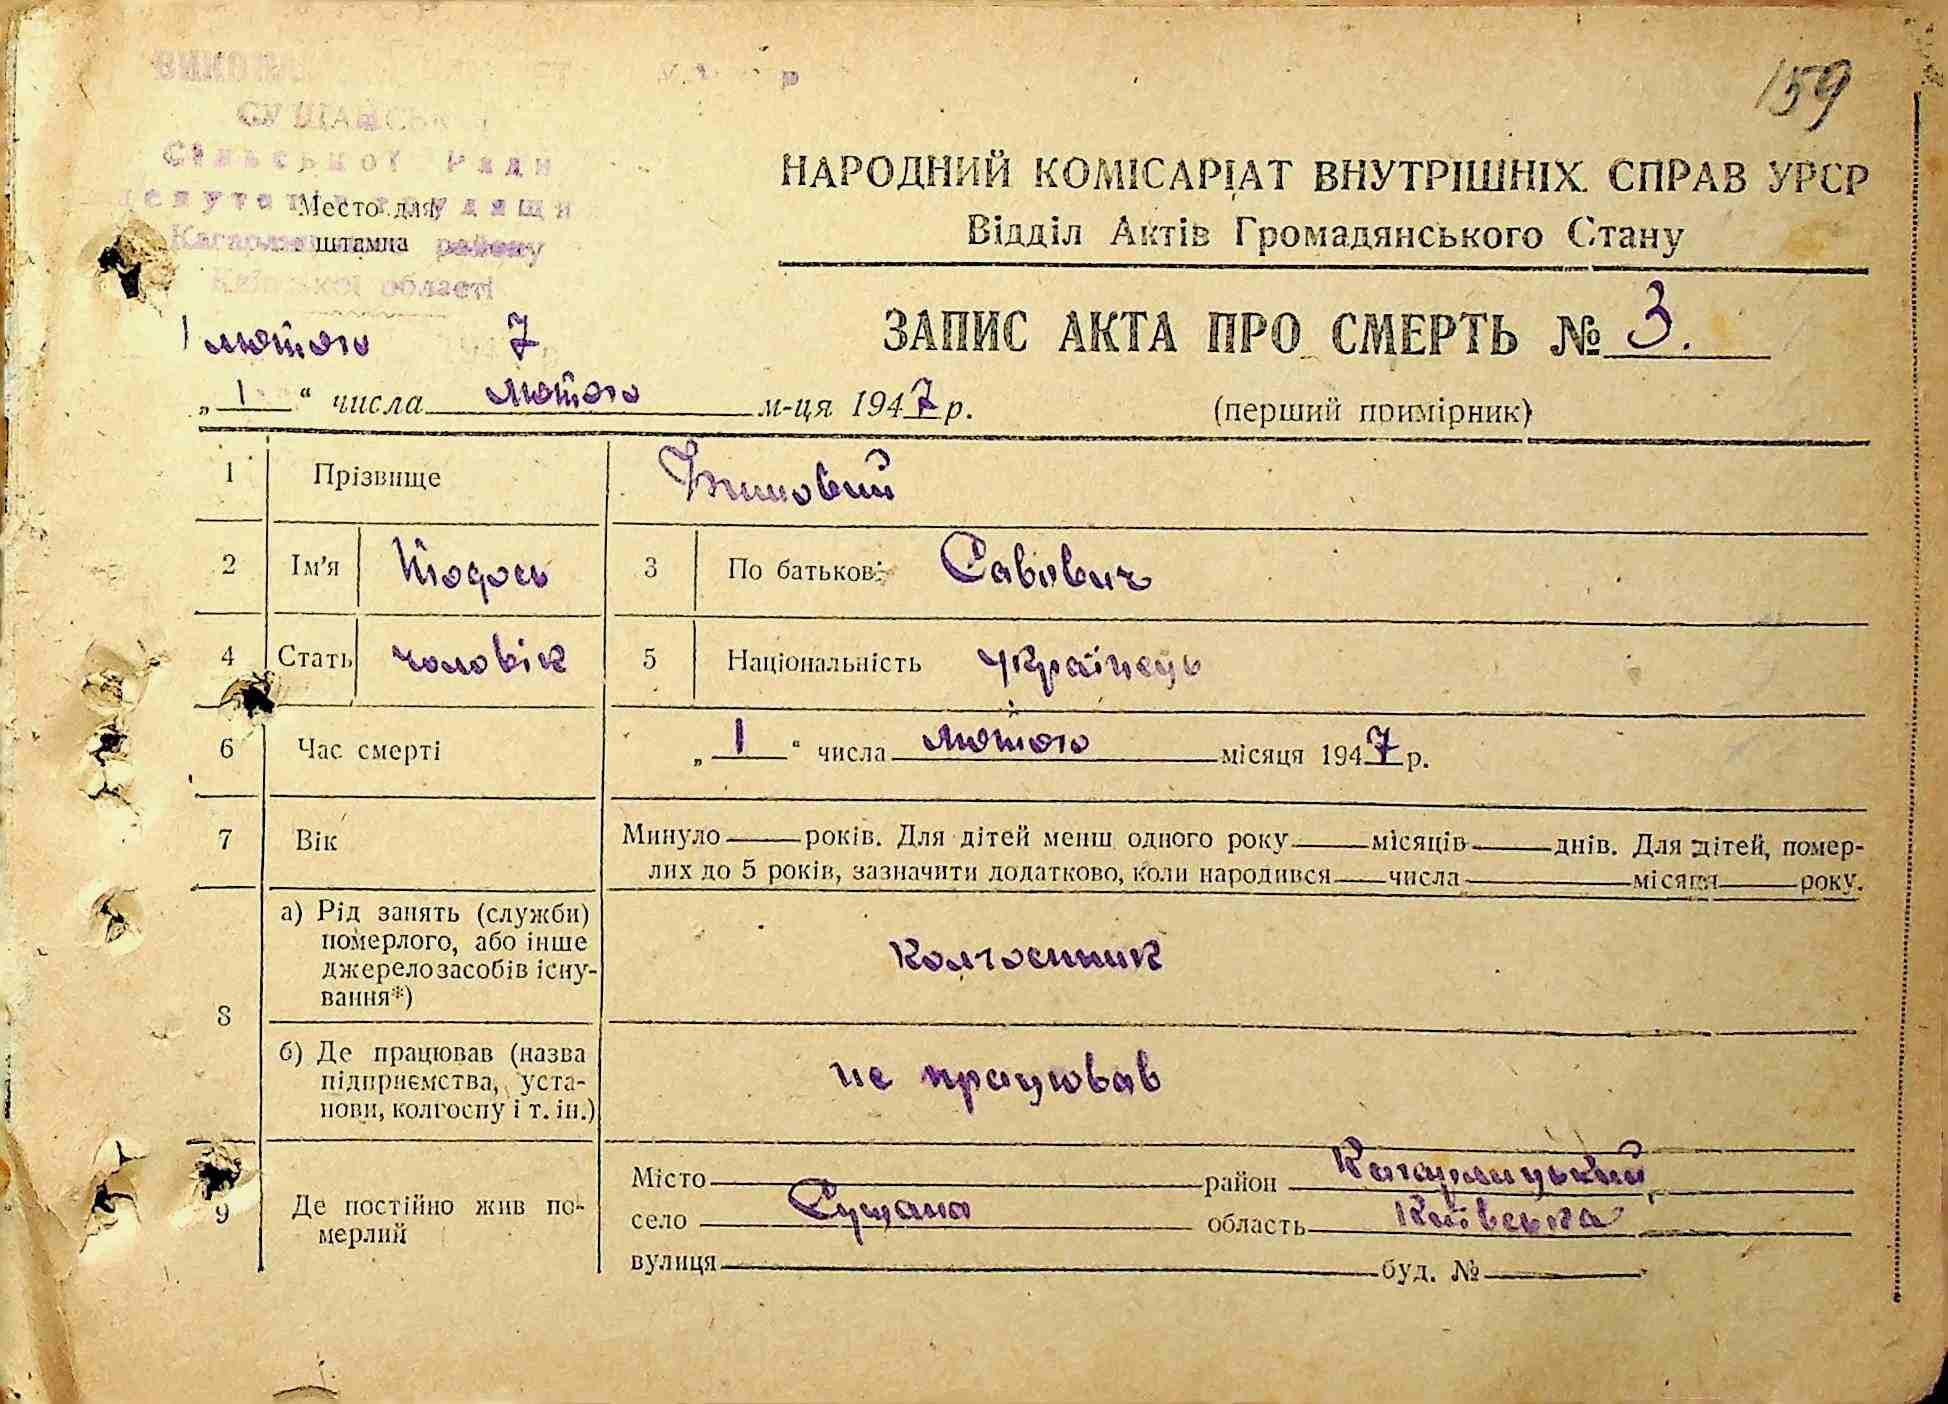 159
СУЩАНСЬК
Сільської Ради
Место для
штампа району
області
НАРОДНИЙ КОМІСАРІАТ ВНУТРІШНІХ СПРАВ УРСР
Відділ Актів Громадянського Стану
1 лютого 7
ЗАПИС АКТА ПРО СМЕРТЬ № 3.
„ 1 “ числа лютого м-ця 1947 р.
(перший примірник)
1 Прізвище
2 Ім'я Тодось 3 По батькові Савович
4 Стать чоловік 5 Національність українець
6 Час смерті „ 1 “ числа лютого місяця 1947 р.
7 Вік Минуло років. Для дітей менш одного року місяців днів. Для дітей, помер-
лих до 5 років, зазначити додатково, коли народився числа місяця року.
8 а) Рід занять (служби)
померлого, або інше
джерело засобів існу-
вання*)
колгоспник
б) Де працював (назва
підприємства, уста-
нови, колгоспу і т. ін.)
не працював
9 Де постійно жив по-
мерлий
Місто район Кагарлицький
село Сущана область Київська
вулиця буд. №